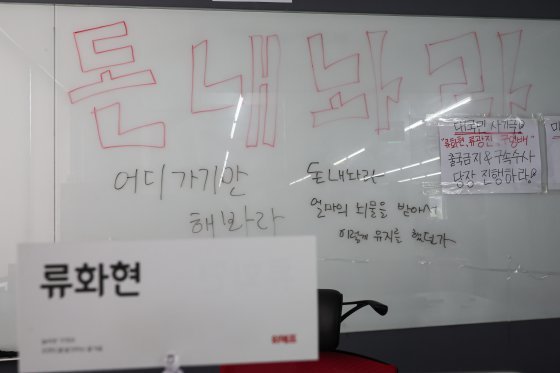 돈내놔라
어디 가기만
해봐라
돈내놔라
얼마의 뇌물을 받아서
이렇게 유지를 했던가
대국민 사기극
류화현, 류광진, 구영배
출국금지 & 구속수사
당장 진행하라
류화현
위메프